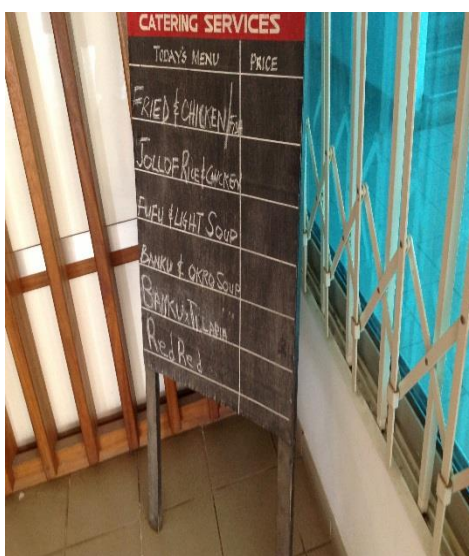 CATERING SERVICES
TODAY'S MENU PRICE
FRIED & CHICKEN/Fish
JOLLOF RICE & CHICKEN
FUFU & LIGHT SOUP
BANKU & OKRO SOUP
BANKU & TILAPIA
Red Red